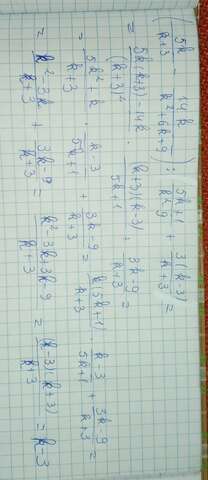 (5k/(k+3) - 14k/(k²+6k+9)) : (5k+1)/(k²-9) + 3(k-3)/(k+3) =
= (5k(k+3)-14k)/(k+3)² · (k+3)(k-3)/(5k+1) + (3k-9)/(k+3) =
= (5k²+k)/(k+3) · (k-3)/(5k+1) + (3k-9)/(k+3) = k(5k+1)/(k+3) · (k-3)/(5k+1) + (3k-9)/(k+3) =
= (k²-3k)/(k+3) + (3k-9)/(k+3) = (k²-3k+3k-9)/(k+3) = (k-3)(k+3)/(k+3) = k-3